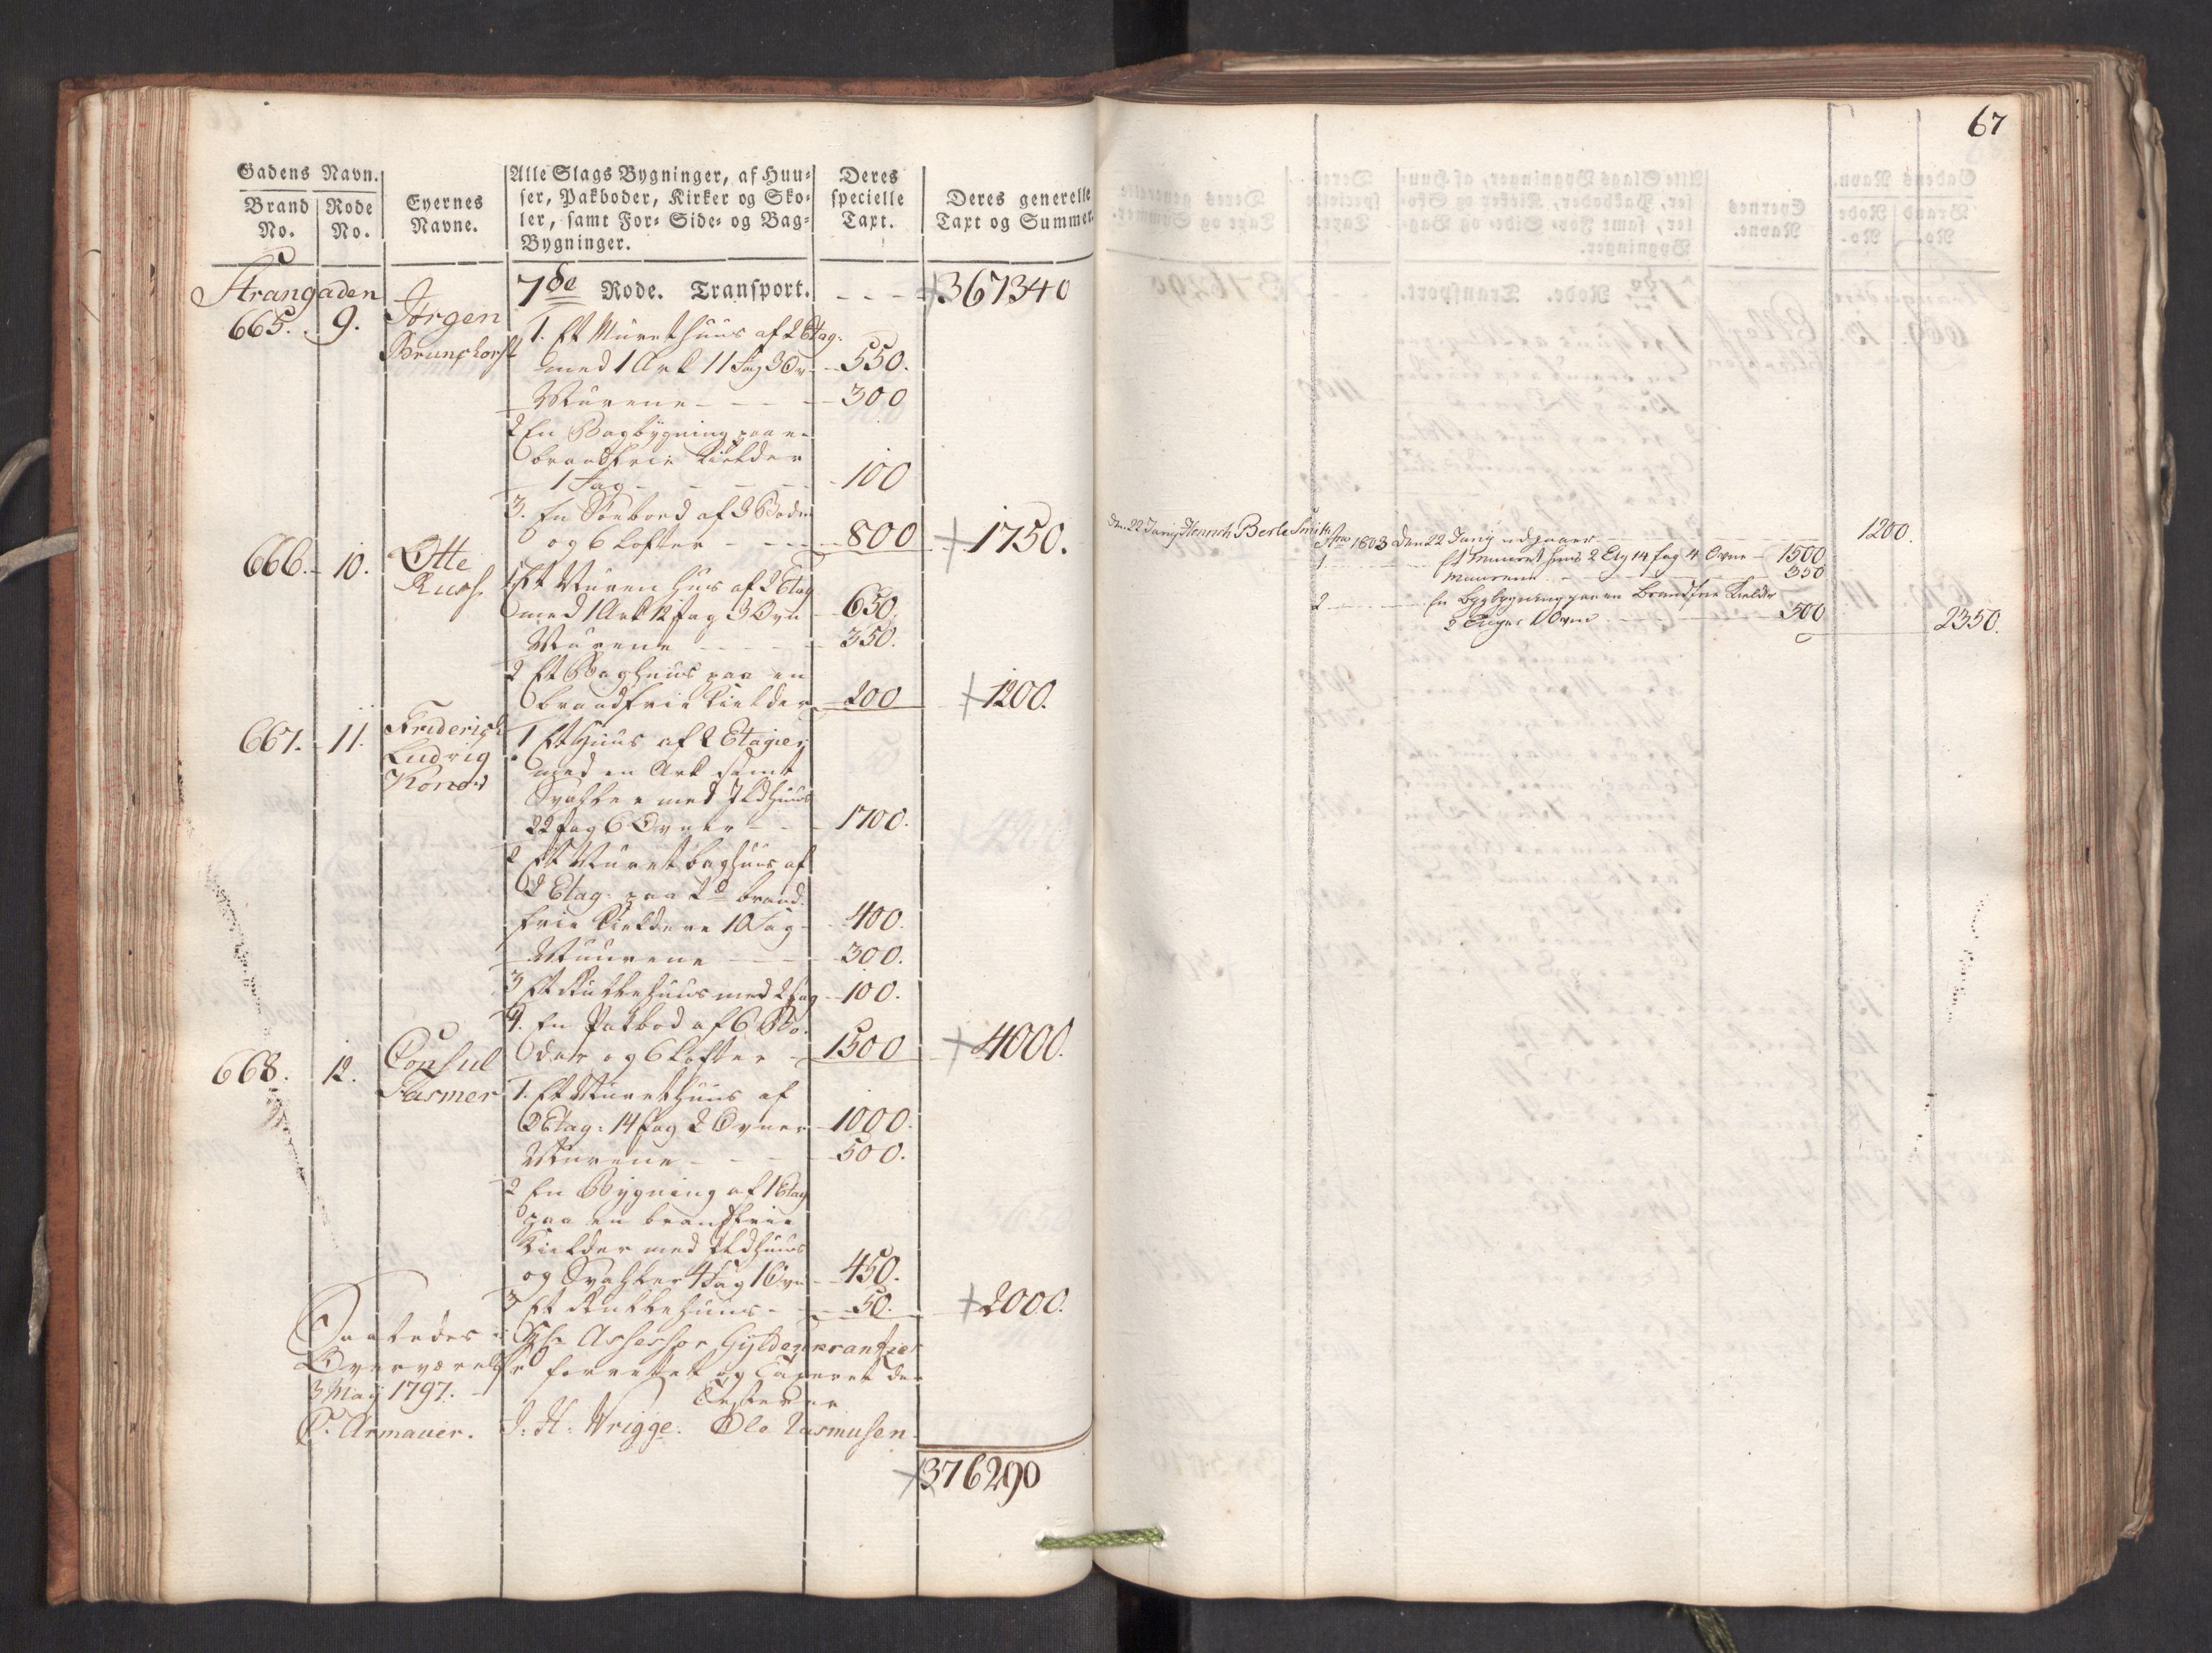 Gadens Navn.
Brand No.
Rode No.
Eyernes Navne.
Alle Slags Bygninger, af Huu-
ser, Pakboder, Kirker og Sko-
ler, samt For- Side- og Bag-
Bygninger.
Deres specielle Taxt.
Deres generelle Taxt og Summer.
Strangaden 7de Rode. Transport. - - - 367340
665. 9. Jørgen Brunchorst
1. Et Muret Huus af 2 Etag.
med 1 Ark 11 Fag 3 Ov - 550.
Murene - - - 300
2 En Bagbygning paa en
brandfrie Kielder
1 Fag - - - 100
3. En Søebod af 3 Boder
og 6 Lofter - - - 800 1750.
666. 10. Otte
1 Et Muren Huus af 2 Etag
med 1 Ark 12 Fag 3 Ovn - 650.
Murene - - - 350.
2 Et Baghuus paa en
brandfrie Kielder 200 1200.
667. 11. Friderich Ludvig Konow
1 Et Huus af 2 Etager
med en Ark samt
Svahler med Ildhuus
22 Fag 6 Ovner - - 1700.
2 Et Muret baghuus af
2 Etag. paa 2de brand-
frie Kieldere 10 Fag - 400.
Muurene - - 300.
3 Et Rullehuus med 2 Fag - 100.
4. En Pakbod af 6 Bo-
der og 6 Lofter - 1500 4000.
668. 12. Consul Fasmer
1. Et Muret Huus af
2 Etag: 14 Fag 2 Ovner - 1000.
Murene - - - 500.
2 En Bygning af 1 Etag
paa en brandfrie
Kielder med Ildhuus
og Svahler 4 Fag 1 Ovn - 450.
3 Et Rullehuus - - 50. 2000.
Saaledes i Hr. Assessor Gyldenkrantzes
Overværelse forrettet og Taxeret den
3 May 1797. Testerer
P. Armauer. J: H: Wrigge. Ole Rasmusen.
376290
67
Den 22 Juny Henrich Berle Smith Ao 1803 Den 22 Juny udgaaer - 1200.
1 - Et Muuret Huus 2 Etg 14 fag 4 Ovne - 1500
Muurene - 350
2 - En Bygbygning paa en Brandfrie Kielder
1 Ovne - 500 2350.